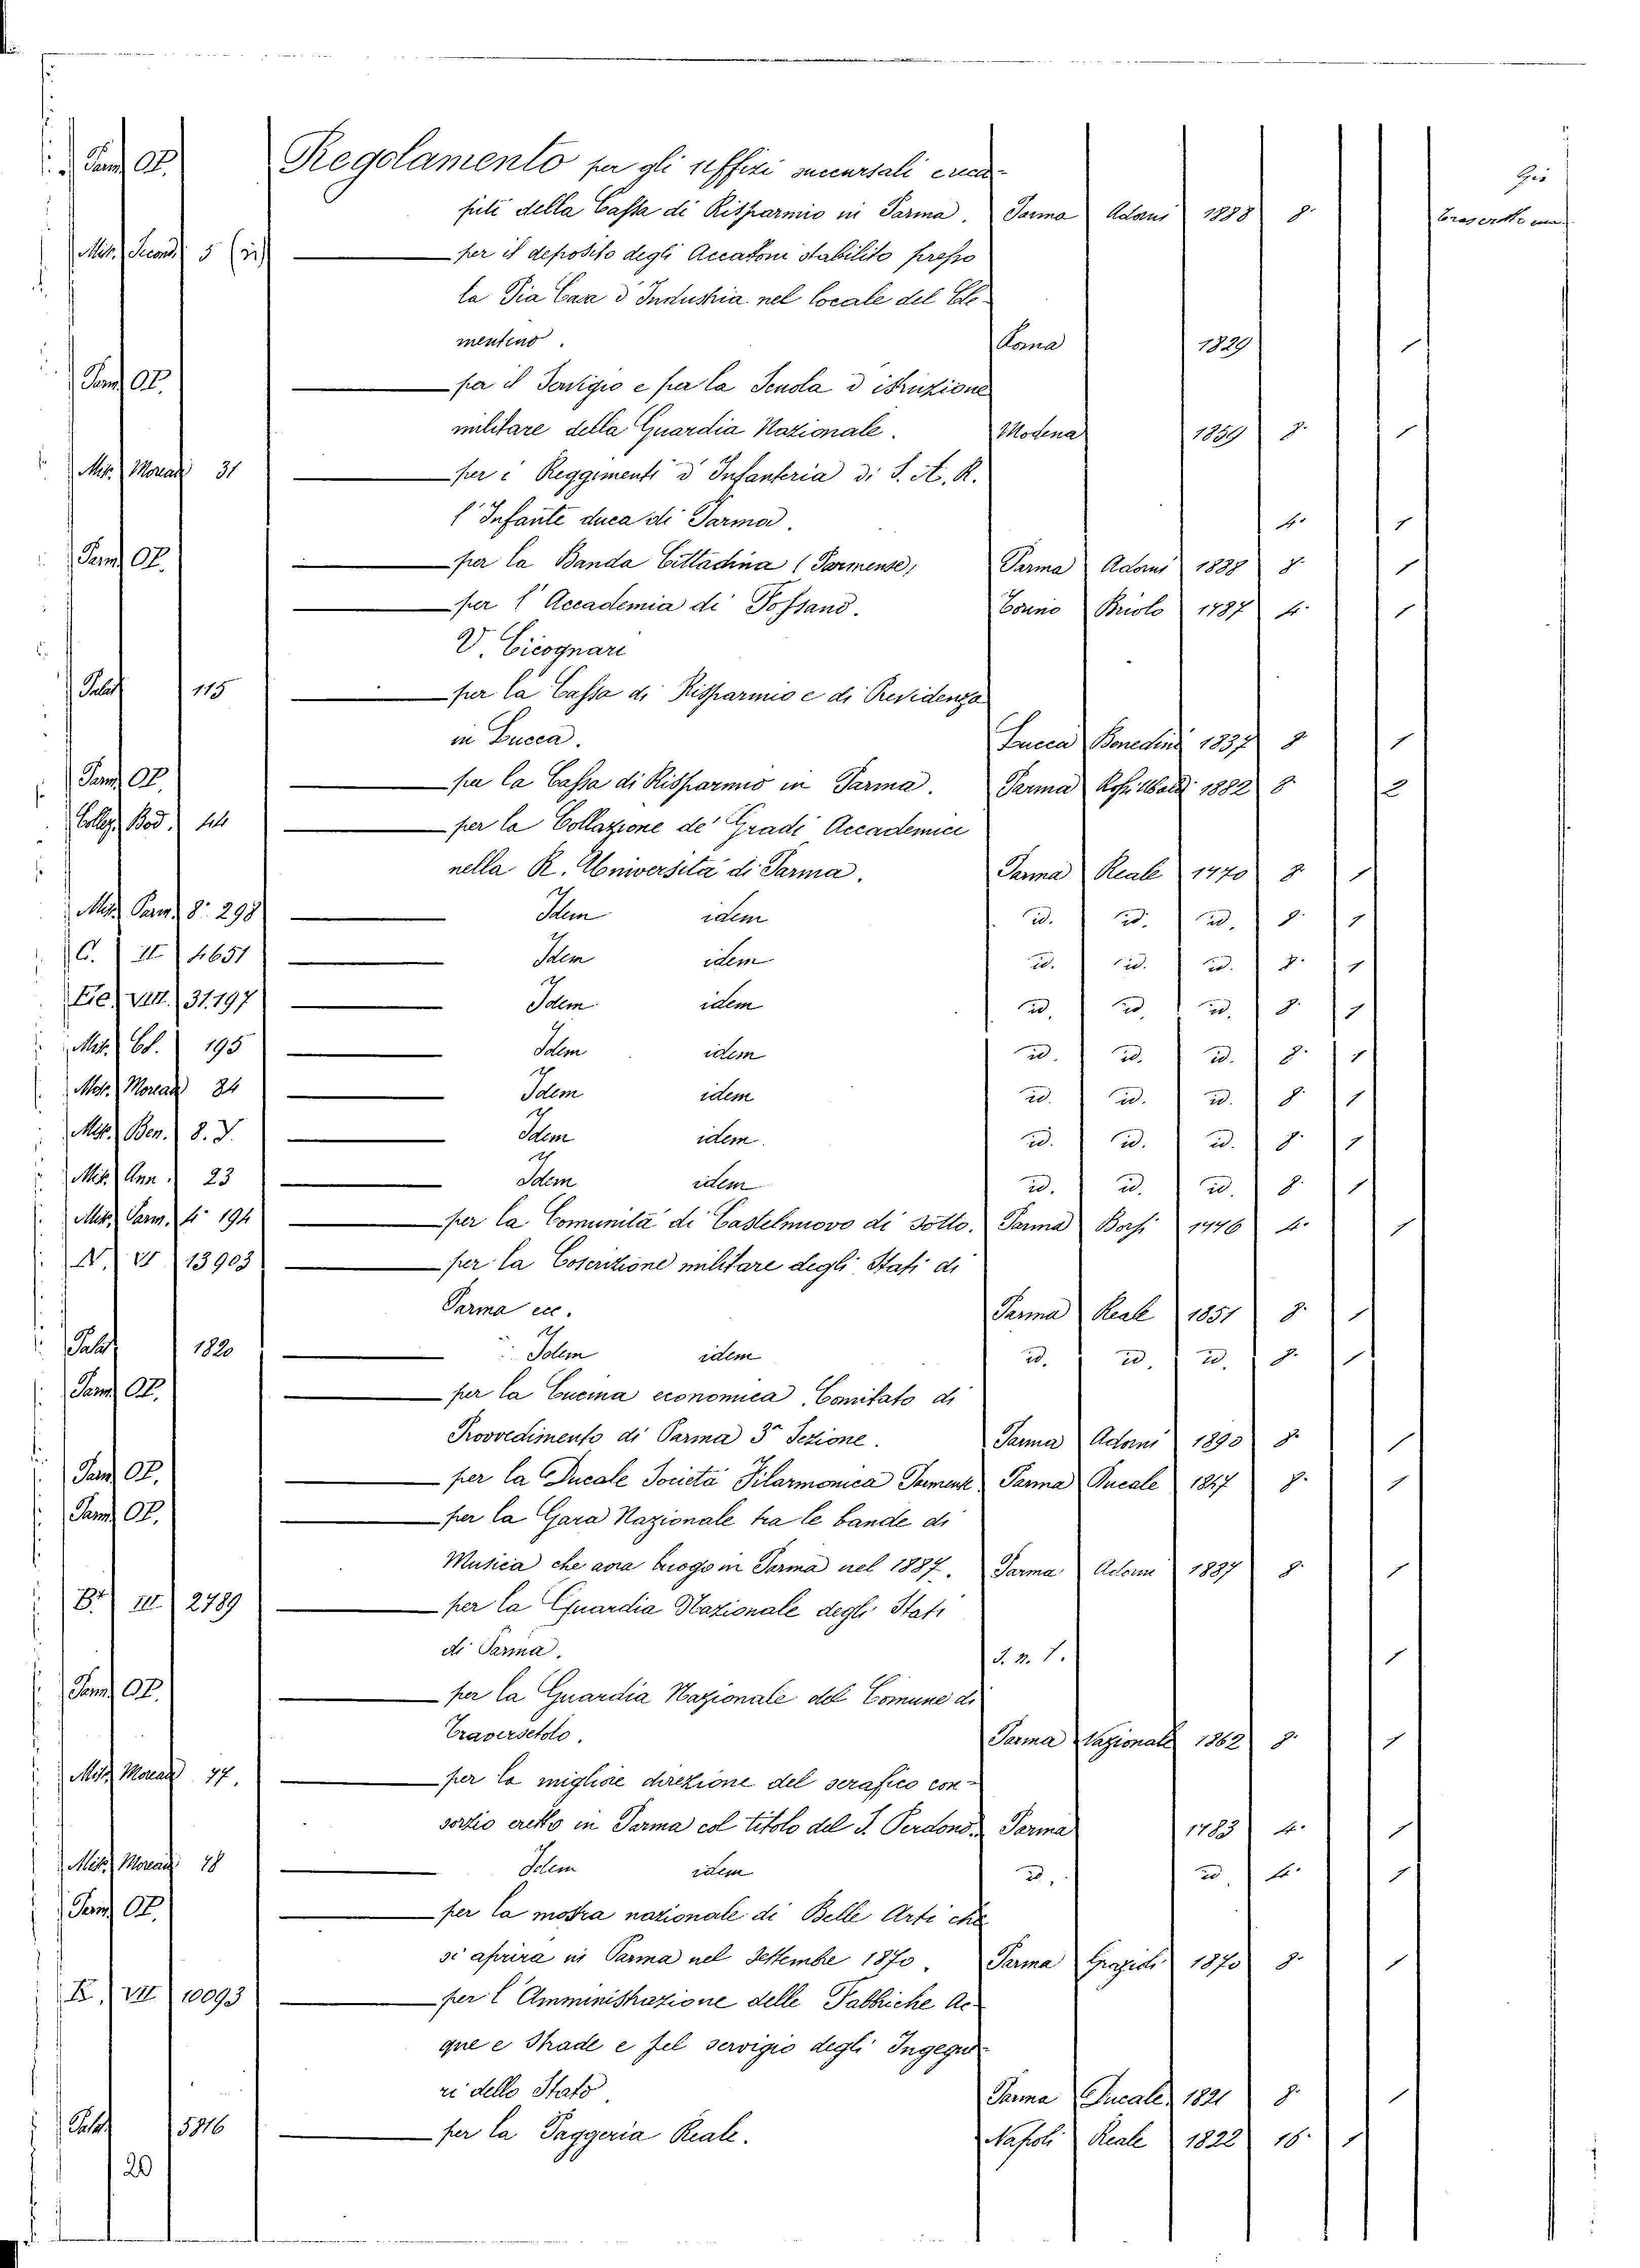 Parm. OP. Regolamento per gli uffizi succursali
della Cassa di Risparmio in Parma. Parma Adorni 1888 8.
Misc. 5 per il deposito degli Accatoni stabilito presso
la Pia Casa d'Industria nel locale del
mentino. 1829 1
Parm. OP. per il Servigio e per la Scuola d'istruzione
militare della Guardia Nazionale. Modena 1859 8. 1
Misc. Moreau 31 per i Reggimenti d'Infanteria di S. A. R.
l'Infante duca di Parma. 4. 1
Parm. OP. per la Banda Cittadina (Parmense) Parma Adorni 1888 8. 1
per l'Accademia di Fossano. Torino Briolo 1787 4. 1
V. Cicognari
Palat. 115 per la Cassa di Risparmio e di Previdenza
in Lucca. Lucca Benedini 1837 8 1
Parm. OP. per la Cassa di Risparmio in Parma. Parma 1882 8. 2
Colleg. Bod. 44 per la Collazione de' Gradi Accademici
nella R. Università di Parma. Parma Reale 1770 8. 1
Misc. Parm. 8.° 298 Idem idem id. id. id. 8. 1
C. II 4651 Idem idem id. id. id. 8. 1
VIII. 31.197 Idem idem id. id. id. 8. 1
Misc. 195 Idem idem id. id. id. 8. 1
Misc. Moreau 34 Idem idem id. id. id. 8. 1
Misc. Ben. 8. Idem idem id. id. id. 8. 1
Misc. Ann. 23 Idem idem id. id. id. 8. 1
Misc. Parm. 4° 194 per la Comunità di Castelnuovo di Sotto. Parma Borsi 1776 4. 1
N. VI 13903 per la Coscrizione militare degli Stati di
Parma ecc. Parma Reale 1851 8. 1
Palat. 1820 Idem idem id. id. id. 8. 1
Parm. OP. per la Cucina economica, Comitato di
Provvedimento di Parma 3ª Sezione. Parma Adorni 1890 8. 1
Parm. OP. per la Ducale Società Filarmonica Parmense Parma Ducale 1847 8. 1
Parm. OP. per la Gara Nazionale tra le bande di
Musica che avra luogo in Parma nel 1887. Parma Adorni 1887 8. 1
B. III 2789 per la Guardia Nazionale degli Stati
di Parma. S. n. t. 1
Parm. OP. per la Guardia Nazionale del Comune di
Traversetolo. Parma Nazionale 1862 8. 1
Misc. Moreau 77. per la migliore direzione del serafico con-
sortio eretto in Parma col titolo del S. Perdono. Parma 1783 4. 1
Misc. Moreau 78 Idem idem id. id. 4. 1
Parm. OP. per la mostra nazionale di Belle Arti che
si aprira in Parma nel Settembre 1870. Parma Grazioli 1870 8. 1
K. VII 10093 per l'Amministrazione delle Fabbriche Ac-
que e Strade e pel servigio degli Ingegne-
ri dello Stato. Parma Ducale 1821 8. 1
Palat. 5816 per la Paggeria Reale. Napoli Reale 1822 16. 1
20